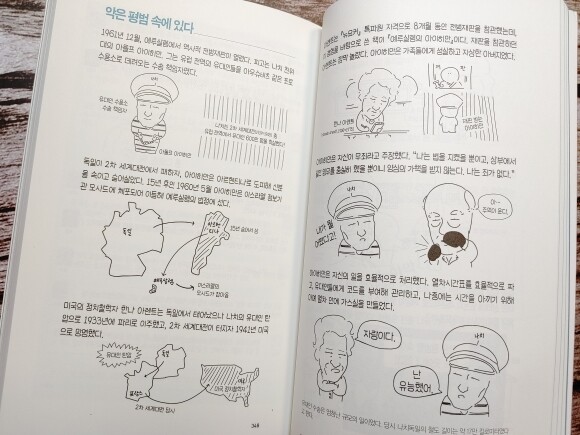 악은 평범 속에 있다
1961년 12월, 예루살렘에서 역사적 전범재판이 열렸다. 피고는 나치 친위
대의 아돌프 아이히만. 그는 유럽 전역의 유대인들을 아우슈비츠 같은 포로
수용소로 데려오는 수송 책임자였다.
나치
유대인 수용소
수송 책임자
나치는 2차 세계대전
유럽 전역에서 유대인 600만 명을 학살했다.
아돌프 아이히만
독일이 2차 세계대전에서 패하자, 아이히만은 아르헨티나로 도피해 신분
을 속이고 숨어살았다. 15년 후인 1960년 5월 아이히만은 이스라엘 정보기
관 모사드에 체포되어 이듬해 예루살렘의 법정에 섰다.
독일
아르헨
티나
15년 숨어서 삶
예루살렘
이스라엘
모사드가 잡아옴
미국의 정치철학자 한나 아렌트는 독일에서 태어났으나 나치의 유대인 탄
압으로 1933년에 파리로 이주했고, 2차 세계대전이 터지자 1941년 미국
으로 망명했다.
유대인 탄압
독일
프랑스
미국
정치철학자
2차 세계대전 당시
368
아렌트는 『뉴요커』 특파원 자격으로 8개월 동안 전범재판을 참관했는데,
바탕으로 쓴 책이 『예루살렘의 아이히만』이다. 재판을 참관하던
깜짝 놀랐다. 아이히만은 가족들에게 성실하고 자상한 아버지였다.
한나 아렌트
재판 받는
아이히만
아이히만은 자신이 무죄라고 주장했다. "나는 법을 지켰을 뿐이고, 상부에서
업무를 충실히 했을 뿐이니 양심의 가책을 받지 않는다. 나는 죄가 없다."
나치
내가 뭘
어쨌다고!
아~
조국이 운다.
아이히만은 자신의 일을 효율적으로 처리했다. 열차시간표를 효율적으로 짜
고, 유대인들에게 코드를 부여해 관리하고, 나중에는 시간을 아끼기 위해
아예 열차 안에 가스실을 만들었다.
자랑이다.
나치
난
유능했어.